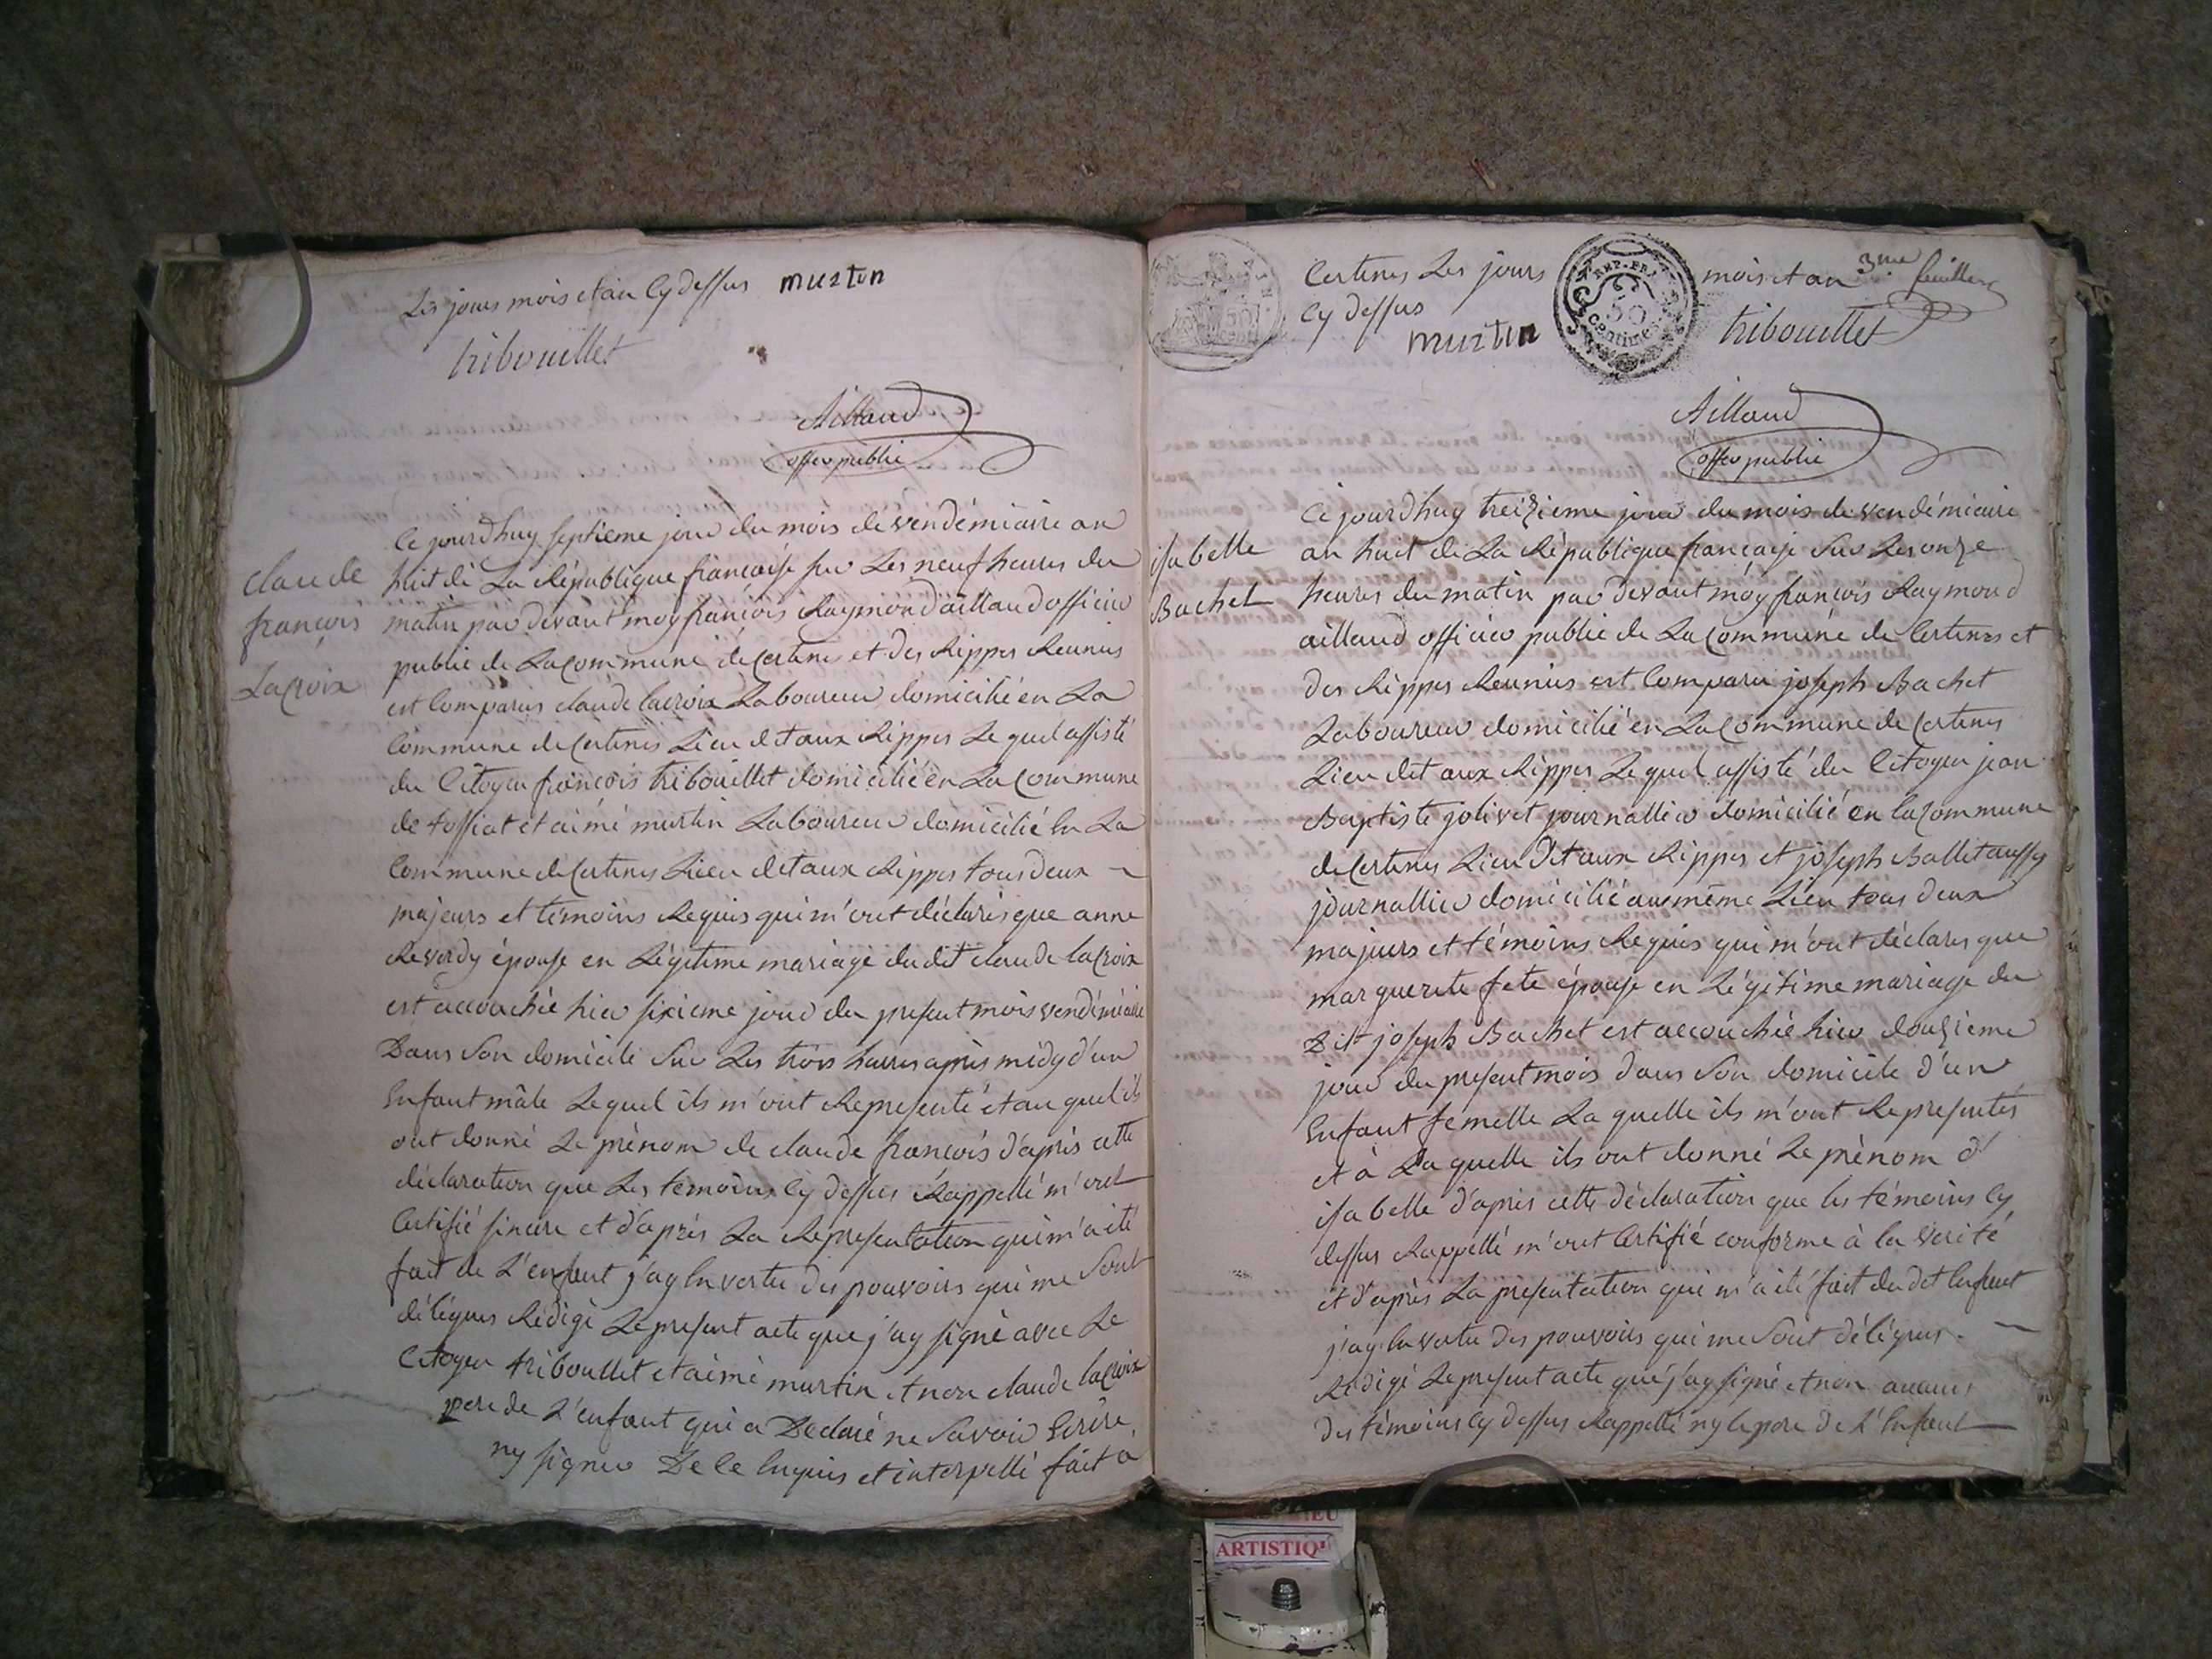 Les jours mois et an cy dessus murtin
tribouillet
Aillaud
offer public
claude
françois
Lacroix
Ce jourdhuy septieme jour du mois de vendémiaire an
huit de La République française sur Les neuf heures du
matin par devant moy françois Raymond aillaud officier
public de La commune de Certines et des Rippes Reunies
est Comparus claude lacroix Laboureur domicilié en La
Commune de Certines Lieu dit aux Rippes Le quel assisté
du Citoyen françois tribouillet domicilié en La Commune
de tossiat et aimé murtin Laboureur domicilié en La
Commune de Certines Lieu dit aux Rippes tous deux
majeurs et témoins Requis qui m'ont déclarés que anne
Reverdy épouse en Légitime mariage du dit claude lacroix
est accouchée hier sixieme jour du present mois vendémiaire
Dans Son domicile Sur Les trois heures après midy d'un
Enfant mâle Le quel ils m'ont Representé et au quel ils
ont donné Le prénom de claude françois d'après cette
déclaration que Les témoins Cy dessus Rappellé m'ont
Certifié sincere et d'après La Representation qui m'a été
fait de L'enfant j'ay En vertu des pouvoirs qui me Sont
délégues Rédigé Le present acte que j'ay signé avec Le
Citoyen triboullet et aimé murtin et non claude lacroix
pere de L'enfant qui a Declaré ne Savoir Ecrire
ny signer De ce Enquis et interpellé fait à
Certines Les jours mois et an 3me feuillet
Cy dessus
REP. FRA
50
Centimes
murtin tribouillet
Aillaud
offer public
isabelle
Bachet
Ce jourdhuy treizieme jour du mois de vendémiaire
an huit de La République française Sur Les onze
heures du matin par devant moy françois Raymond
aillaud officier public de La Commune de Certines et
des Rippes Reunies est Comparu joseph Bachet
Laboureur domicilié en La Commune de Certines
Lieu dit aux Rippes Le quel assisté du Citoyen jean
Baptiste jolivet journallier domicilié en la Commune
de Certines Lieu dit aux Rippes et joseph Ballet aussy
journallier domicilié au même Lieu tous deux
majeurs et témoins Requis qui m'ont déclarés que
marguerite fete épouse en Légitime mariage du
Dit joseph Bachet est accouchée hier douzieme
jour du present mois dans Son domicile d'un
Enfant femelle La quelle ils m'ont Representés
et à La quelle ils ont donné Le prénom d'
isabelle d'après cette déclaration que les témoins Cy
dessus Rappellé m'ont Certifié conforme à la verité
et d'après La presentation qui m'a été fait du dit Enfant
j'ay En vertu des pouvoirs qui me Sont délégues
Rédigé Le present acte que j'ay signé et non aucuns
des témoins Cy dessus Rappellé ny le pere de L'Enfant
ARTISTIQ